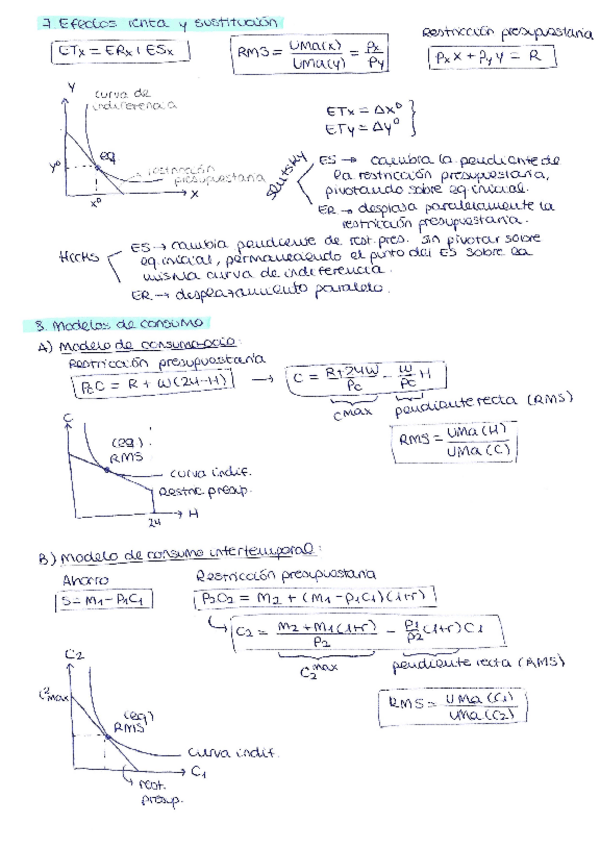 7. Efectos renta y sustitución
Restricción presupuestaria
ETx = ERx + ESx
RMS = UMa(x)/UMa(y) = Px/Py
Px X + Py Y = R
Y
curva de
indiferencia
ETx = ΔX⁰
ETy = ΔY⁰
eq
y⁰
restricción
presupuestaria
x⁰
X
Slutsky
ES → cambia la pendiente de
la restricción presupuestaria,
pivotando sobre eq. inicial.
ER → desplaza paralelamente la
restricción presupuestaria.
Hicks
ES → cambia pendiente de rest. pres. sin pivotar sobre
eq. inicial, permaneciendo el punto del ES sobre la
misma curva de indiferencia.
ER → desplazamiento paralelo.
8. Modelos de consumo
A) Modelo de consumo-ocio:
Restricción presupuestaria
PcC = R + W(24-H) → C = (R+24W)/Pc - W/Pc H
Cmax
pendiente recta (RMS)
RMS = UMa(H)/UMa(C)
C
(eq)
RMS
curva indif.
Restric. presup.
24
H
B) Modelo de consumo intertemporal:
Ahorro
Restricción presupuestaria
S = M1 - P1C1
P2C2 = M2 + (M1 - P1C1)(1+r)
C2 = (M2 + M1(1+r))/P2 - P1/P2 (1+r) C1
C2max
pendiente recta (RMS)
RMS = UMa(C1)/UMa(C2)
C2
C2max
(eq)
RMS
Curva indif.
C1
rest.
presup.